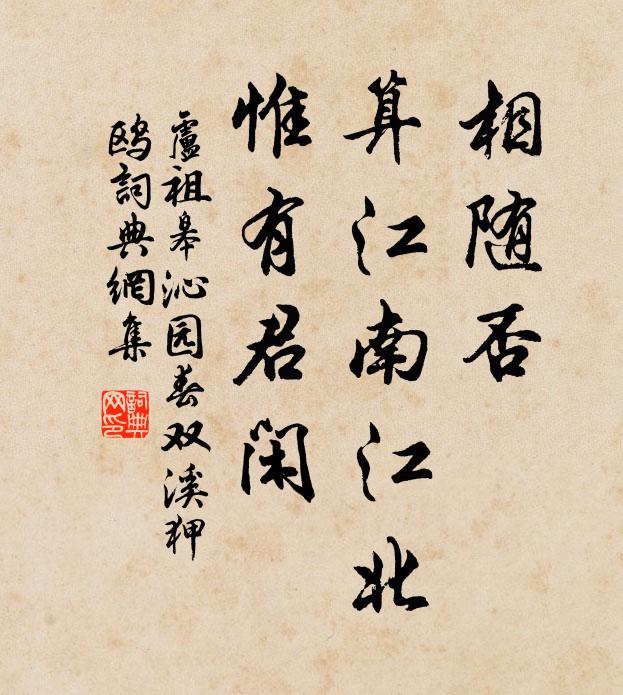 相随否
算江南江北
惟有君闲
盧祖皋沁园春双溪狎
鸥詞典網集
詞典
网印